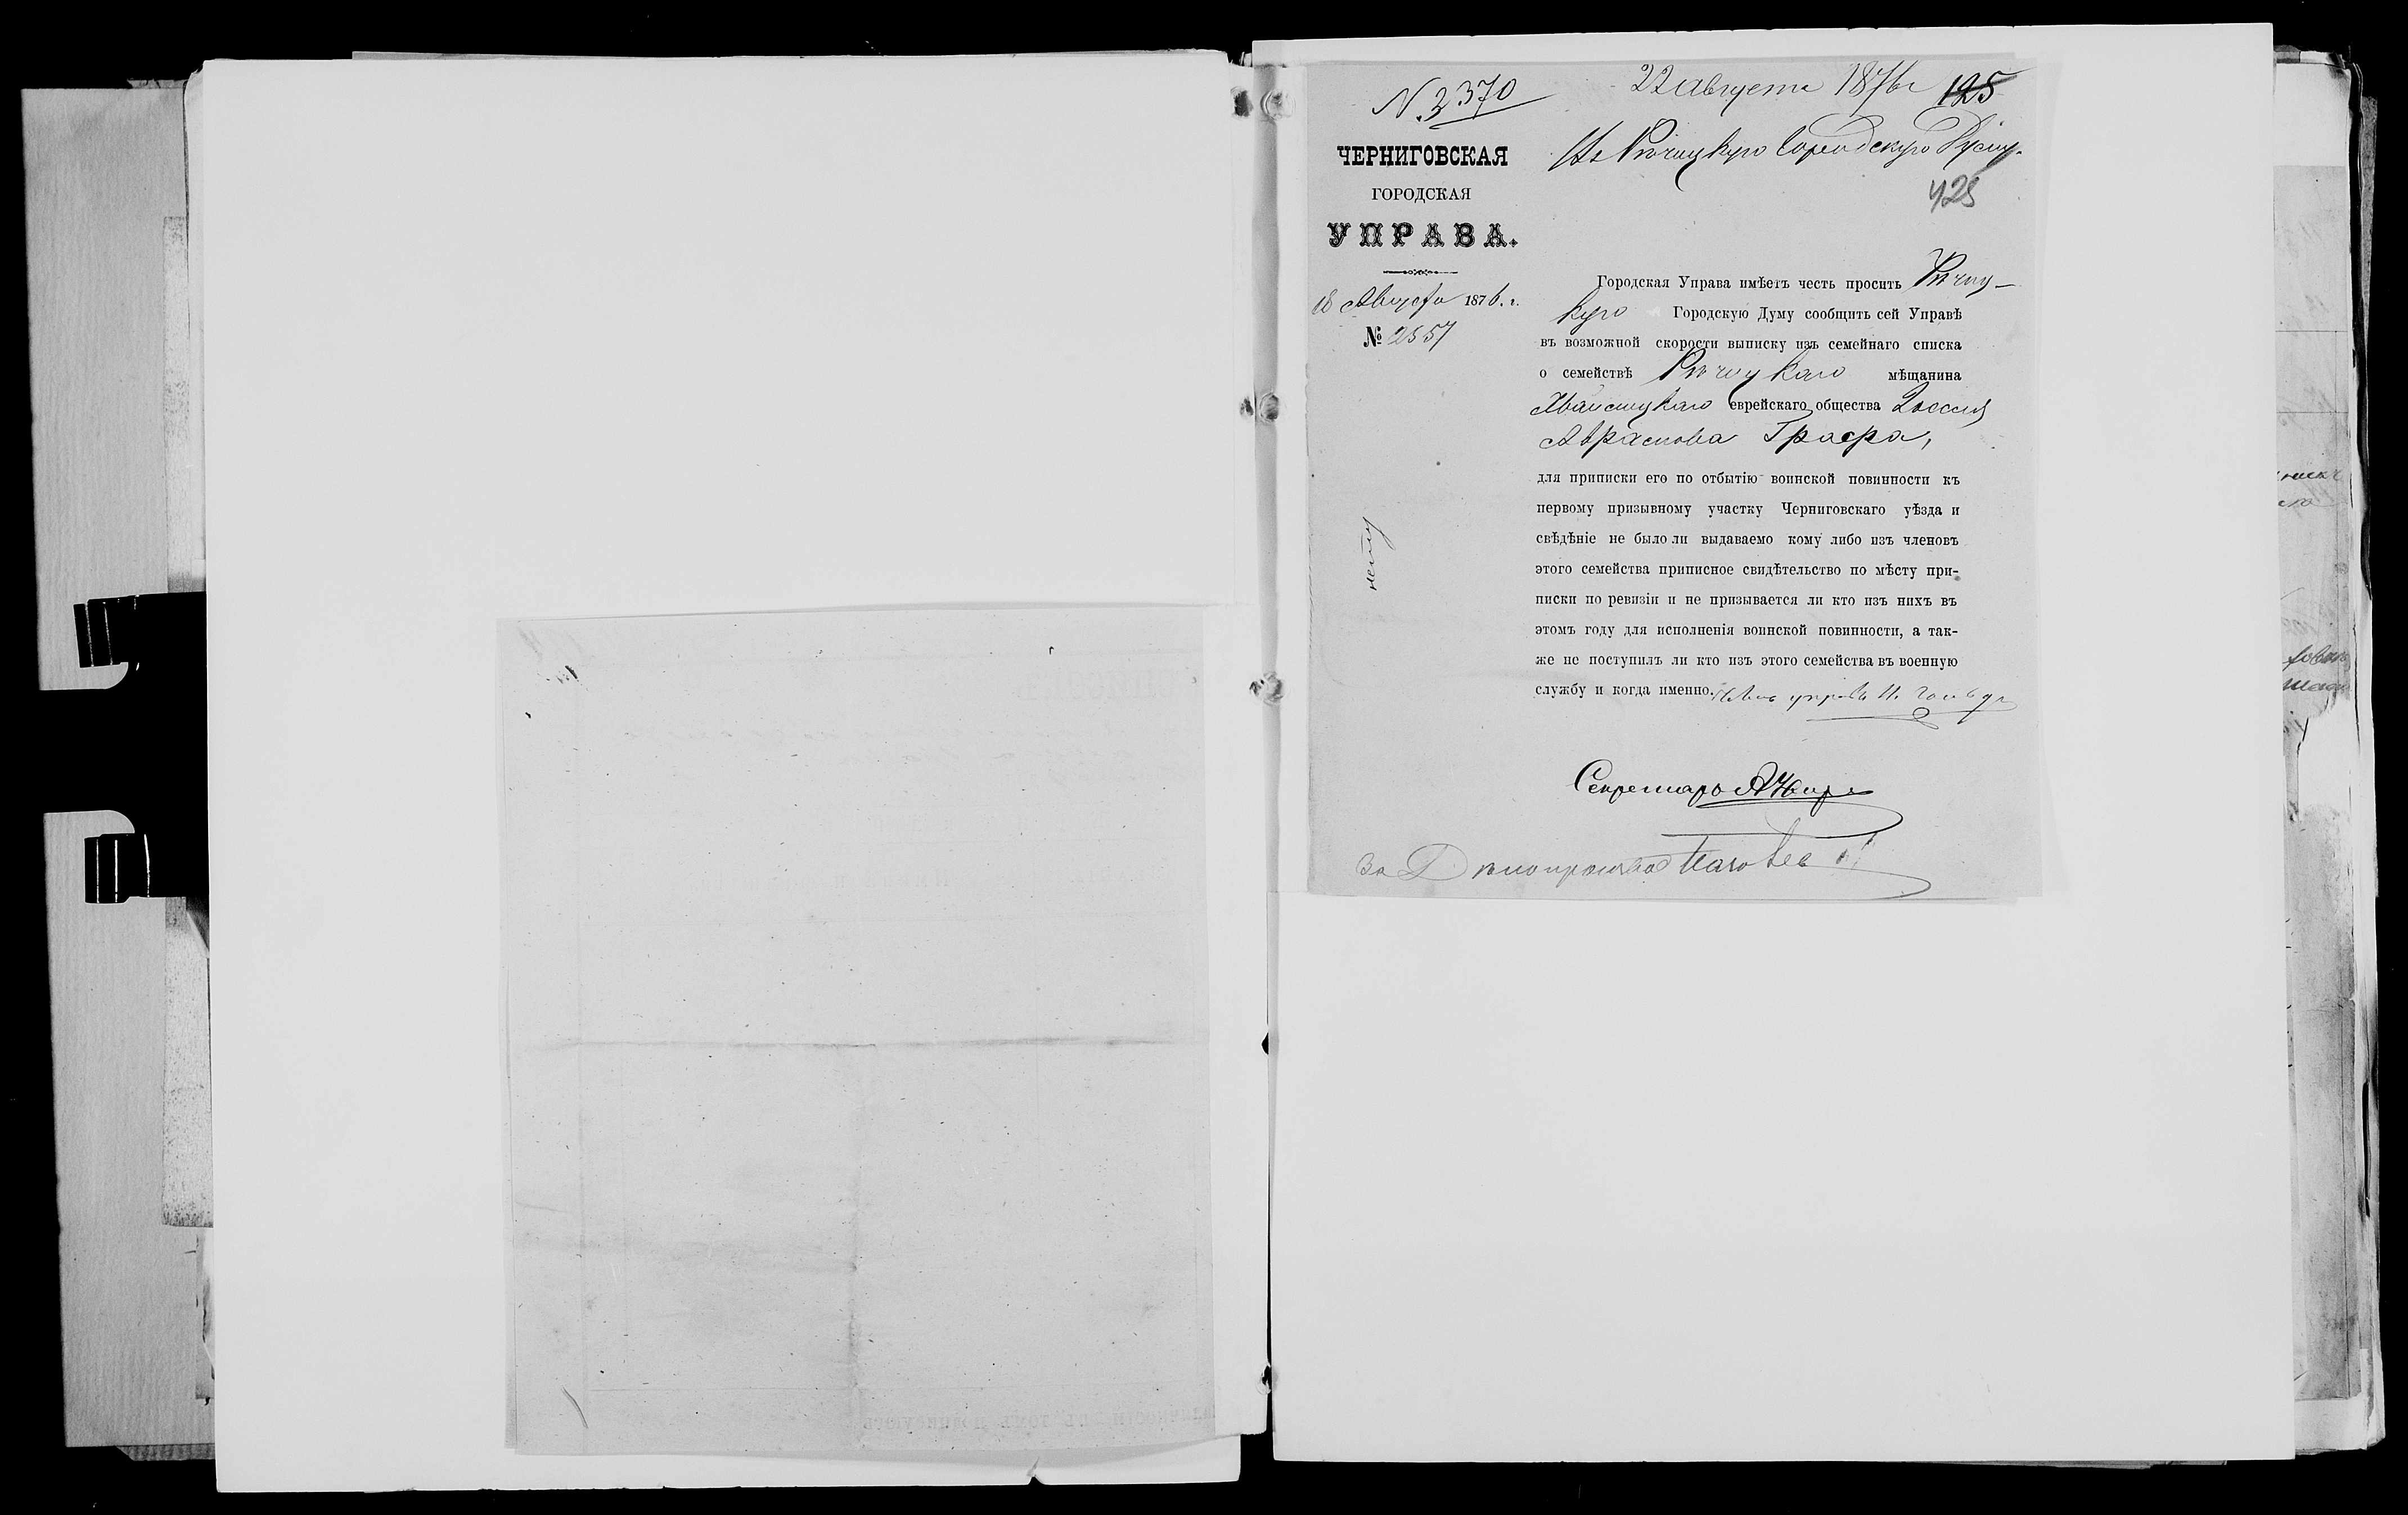 N 3370
22 Августа 1876 г
125
Въ Речицкую Городскую Думу.
428
ЧЕРНИГОВСКАЯ
ГОРОДСКАЯ
УПРАВА.
18 Августа 1876. г.
№ 2557
Городская Управа имѣетъ честь просить Речиц-
кую Городскую Думу сообщить сей Управѣ
въ возможной скорости выписку изъ семейнаго списка
о семействѣ Речицкаго мѣщанина
еврейскаго общества
Абрамова Графа,
для приписки его по отбытію воинской повинности къ
первому призывному участку Черниговскаго уѣзда и
свѣдѣніе не было ли выдаваемо кому либо изъ членовъ
этого семейства приписное свидѣтельство по мѣсту при-
писки по ревизіи и не призывается ли кто изъ нихъ въ
этомъ году для исполненія воинской повинности, а так-
же не поступилъ ли кто изъ этого семейства въ военную
службу и когда именно.
нету
Секретарь
За